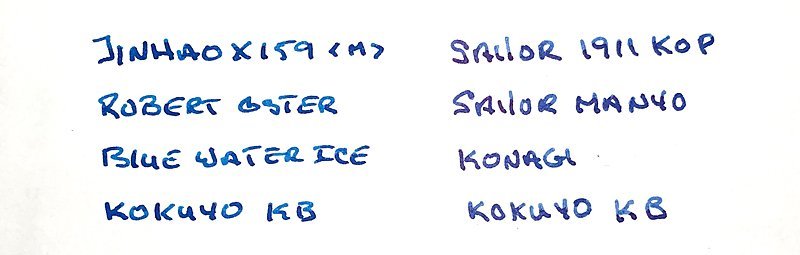 JINHAO X159 <M>
ROBERT OSTER
BLUE WATER ICE
KOKUYO KB
SAILOR 1911 KOP
SAILOR MANYO
KONAGI
KOKUYO KB